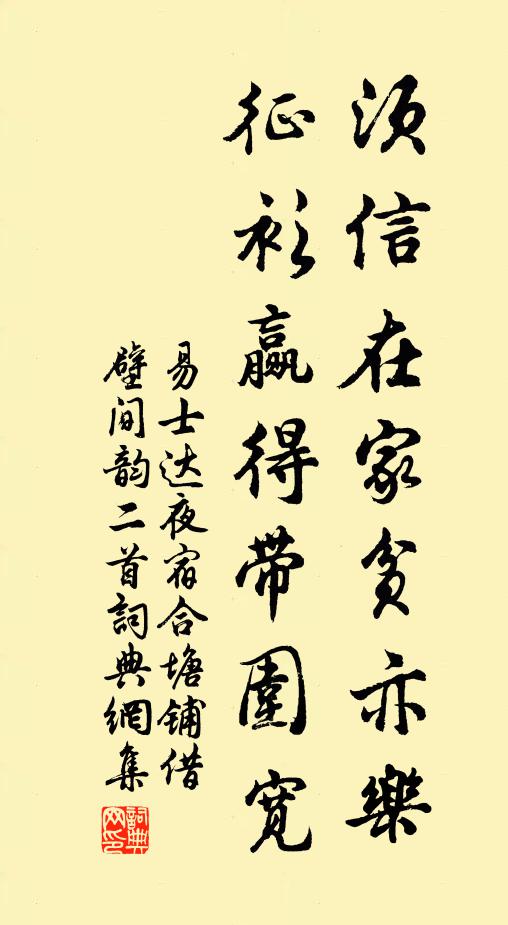 须信在家贫亦樂
征衫贏得带圍寛
易士达夜宿合塘铺借
壁间韵二首詞典網集
詞典
网印